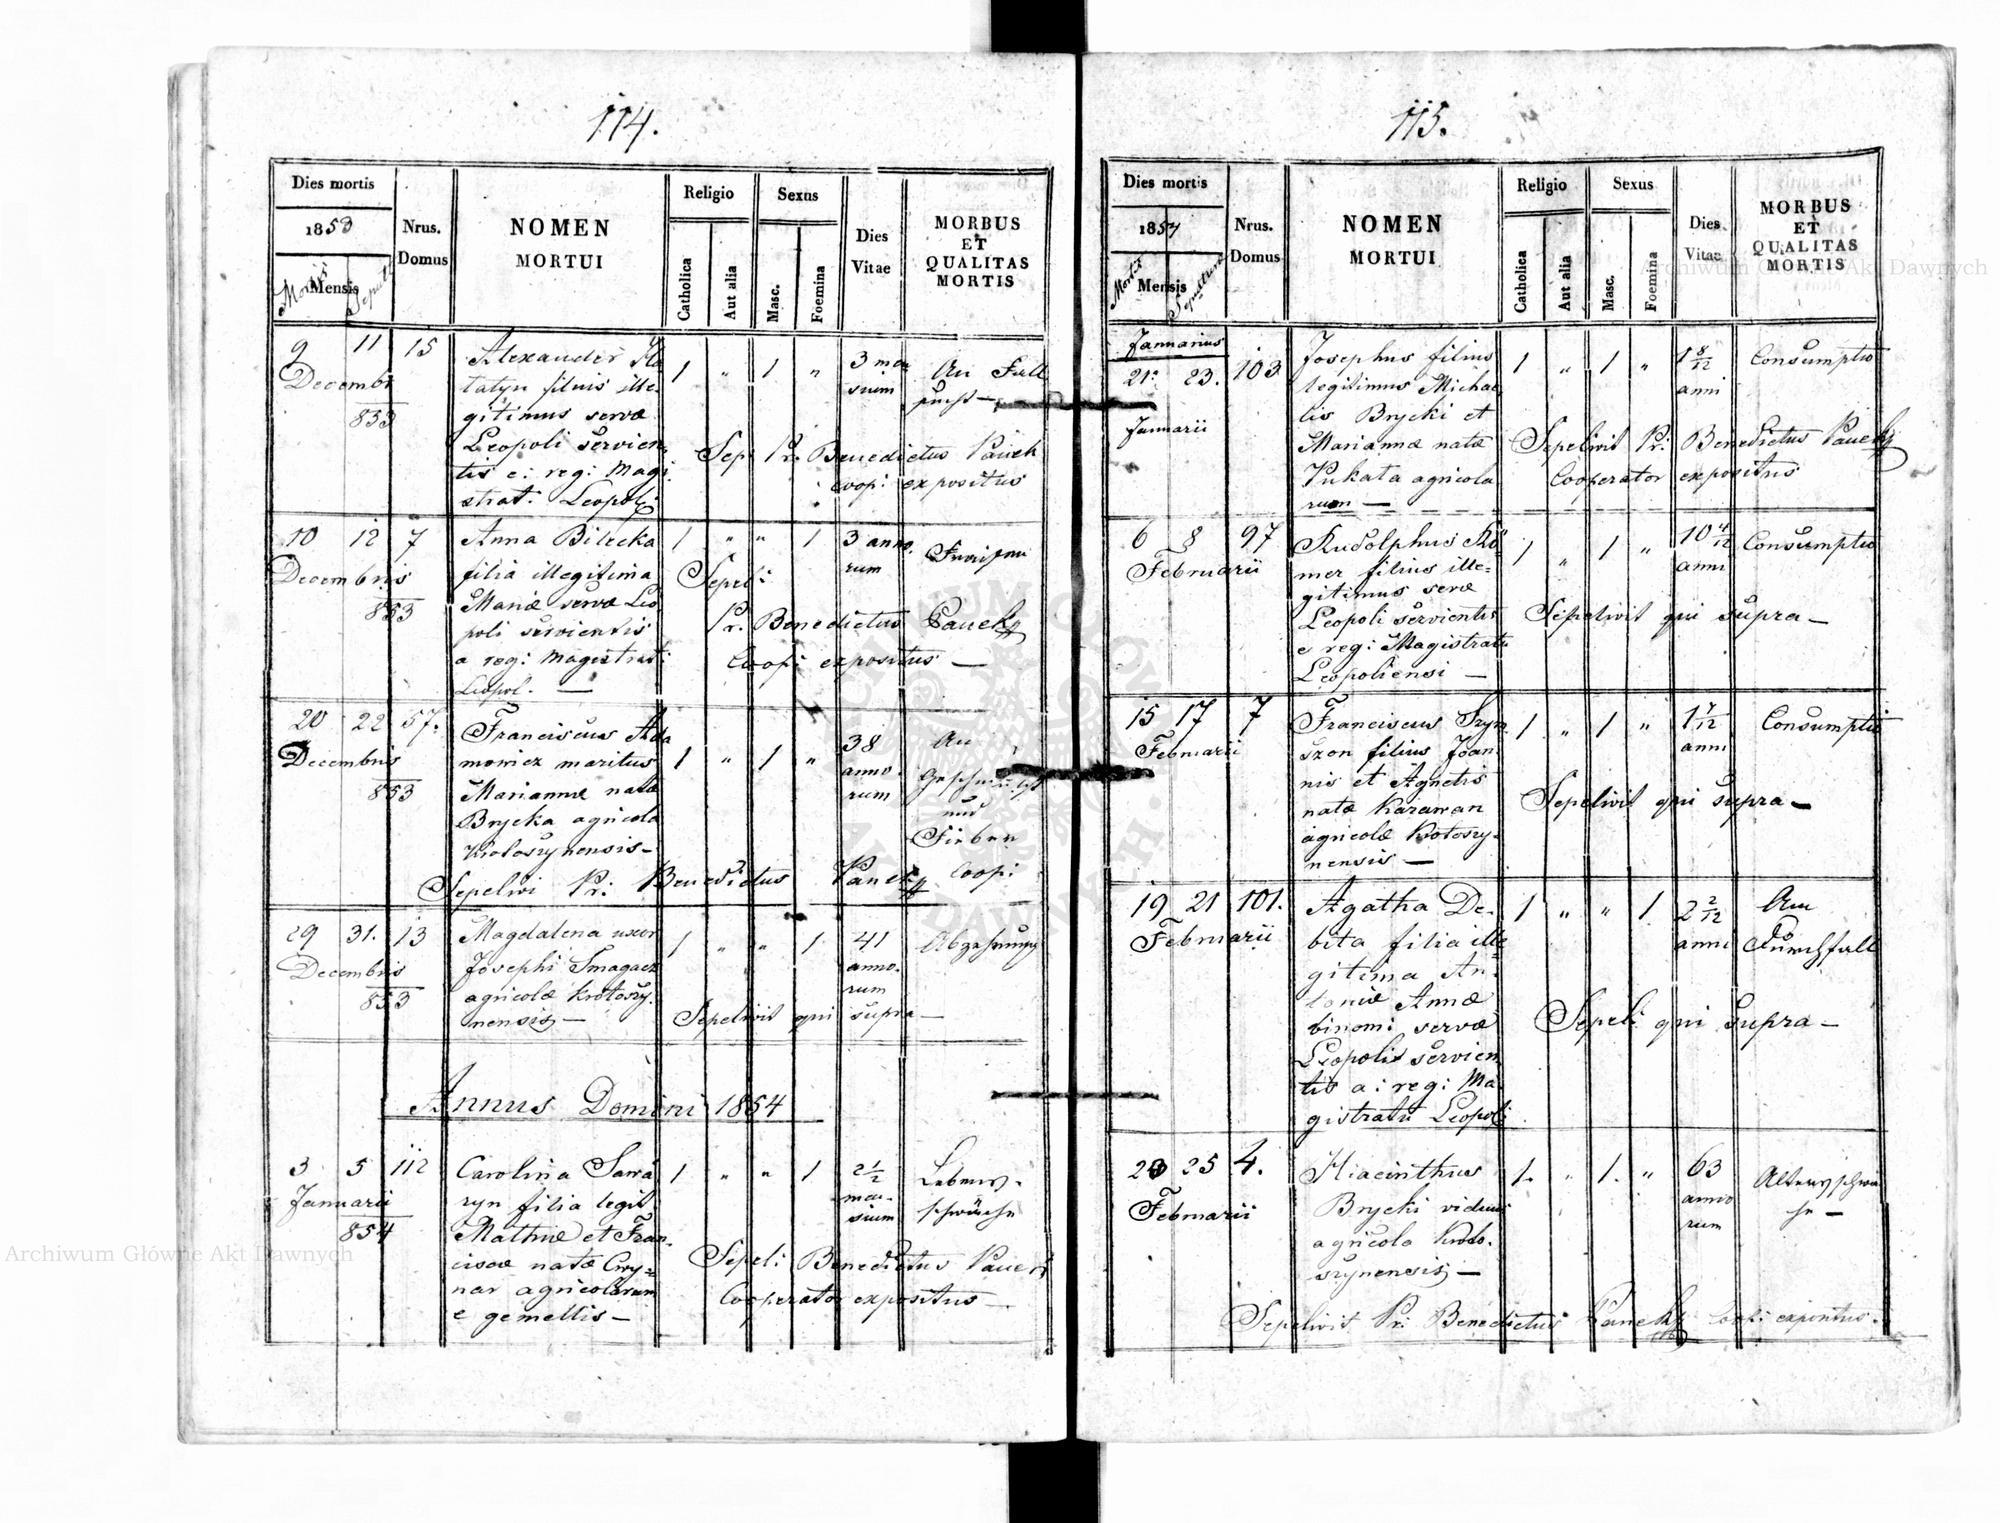 114.
Dies mortis
1853
Mortis Mensis Sepult
Nrus.
Domus
NOMEN
MORTUI
Religio
Catholica
Aut alia
Sexus
Masc.
Foemina
Dies
Vitae
MORBUS
ET
QUALITAS
MORTIS
9 11 15
Decembr
853
Alexander
filius ille-
gitimus servæ
Leopoli servien-
tis e: reg: Magi
strat. Leopoli
1 " 1 "
3 men
sium
An
Sep. Pr. Benedictus Panek
coop: expositus
10 12 7
Decembris
853
Anna Bilecka
filia illegitima
Mariæ servæ Leo
poli servientis
a reg: Magistrat:
Leopol. —
1 " " 1
3 anno.
rum
Fraisen
Sepeli:
Pr. Benedictus Panek
Coop: expositus —
20 22 57.
Decembris
853
Franciscus Ada
mowicz maritus
Mariannæ natæ
Brycka agricola
Krotoszynensis —
1 " 1 "
38
anno.
rum
An
und
Fieber
Sepelivi Pr: Benedictus Panek Coop:
29 31. 13
Decembris
853
Magdalena uxor
Josephi Smagacz
agricolæ Krotoszy
nensis —
1 " " 1
41
anno.
rum
Abzehrung
Sepelivit qui supra —
Annus Domini 1854
3 5 112
Januarii
854
Carolina Sawa
ryn filia legit.
Mathiæ et Fran-
ciscæ natæ Cwy=
nar agricolarum
e gemellis —
1 " " 1
2 1/2
men-
sium
Lebens-
schwäche
Sepeli: Benedictus Panek
Cooperator expositus —
115.
Dies mortis
1854
Mortis Mensis Sepulturæ
Nrus.
Domus
NOMEN
MORTUI
Religio
Catholica
Aut alia
Sexus
Masc.
Foemina
Dies
Vitae
MORBUS
ET
QUALITAS
MORTIS
Januarius
21. 23. 103
Januarii
Josephus filius
legitimus Michae
lis Brycki et
Mariannæ natæ
Pukata agricola
rum —
1 " 1 "
1 8/12
anni
Consumptio
Sepelivit Pr: Benedictus Panek
Cooperator expositus
6 8 97
Februarii
Rudolphus Rö-
mer filius ille=
gitimus servæ
Leopoli servientis
e reg: Magistratu
Leopoliensi —
1 " 1 "
10 4/12
anni
Consumptio
Sepelivit qui supra —
15 17 7
Februarii
Franciscus Szym
szon filius Joan-
nis et Agnetis
natæ Karawan
agricolæ Krotoszy-
nensis —
1 " 1 "
anni
Consumptio
Sepelivit qui supra —
19 21 101.
Februarii
Agatha De-
bita filia ille
gitima An-
toniæ Annæ
binomi servæ
Leopolis servien
tis a: reg: Ma
gistratu Leopoli
1 " " 1
2 2/12
anni
Am
Durchfall
Sepeli: qui supra —
23 25 4.
Februarii
Hiacinthus
Brycki viduus
agricola Kroto-
szynensis —
1. " 1. "
63
anno
rum
Altersschwä
che —
Sepelivit Pr: Benedictus Panek Coop: expositus.
Archiwum Główne Akt Dawnych
Archiwum Główne Akt Dawnych
ARCHIWUM GŁÓWNE AKT DAWNYCH